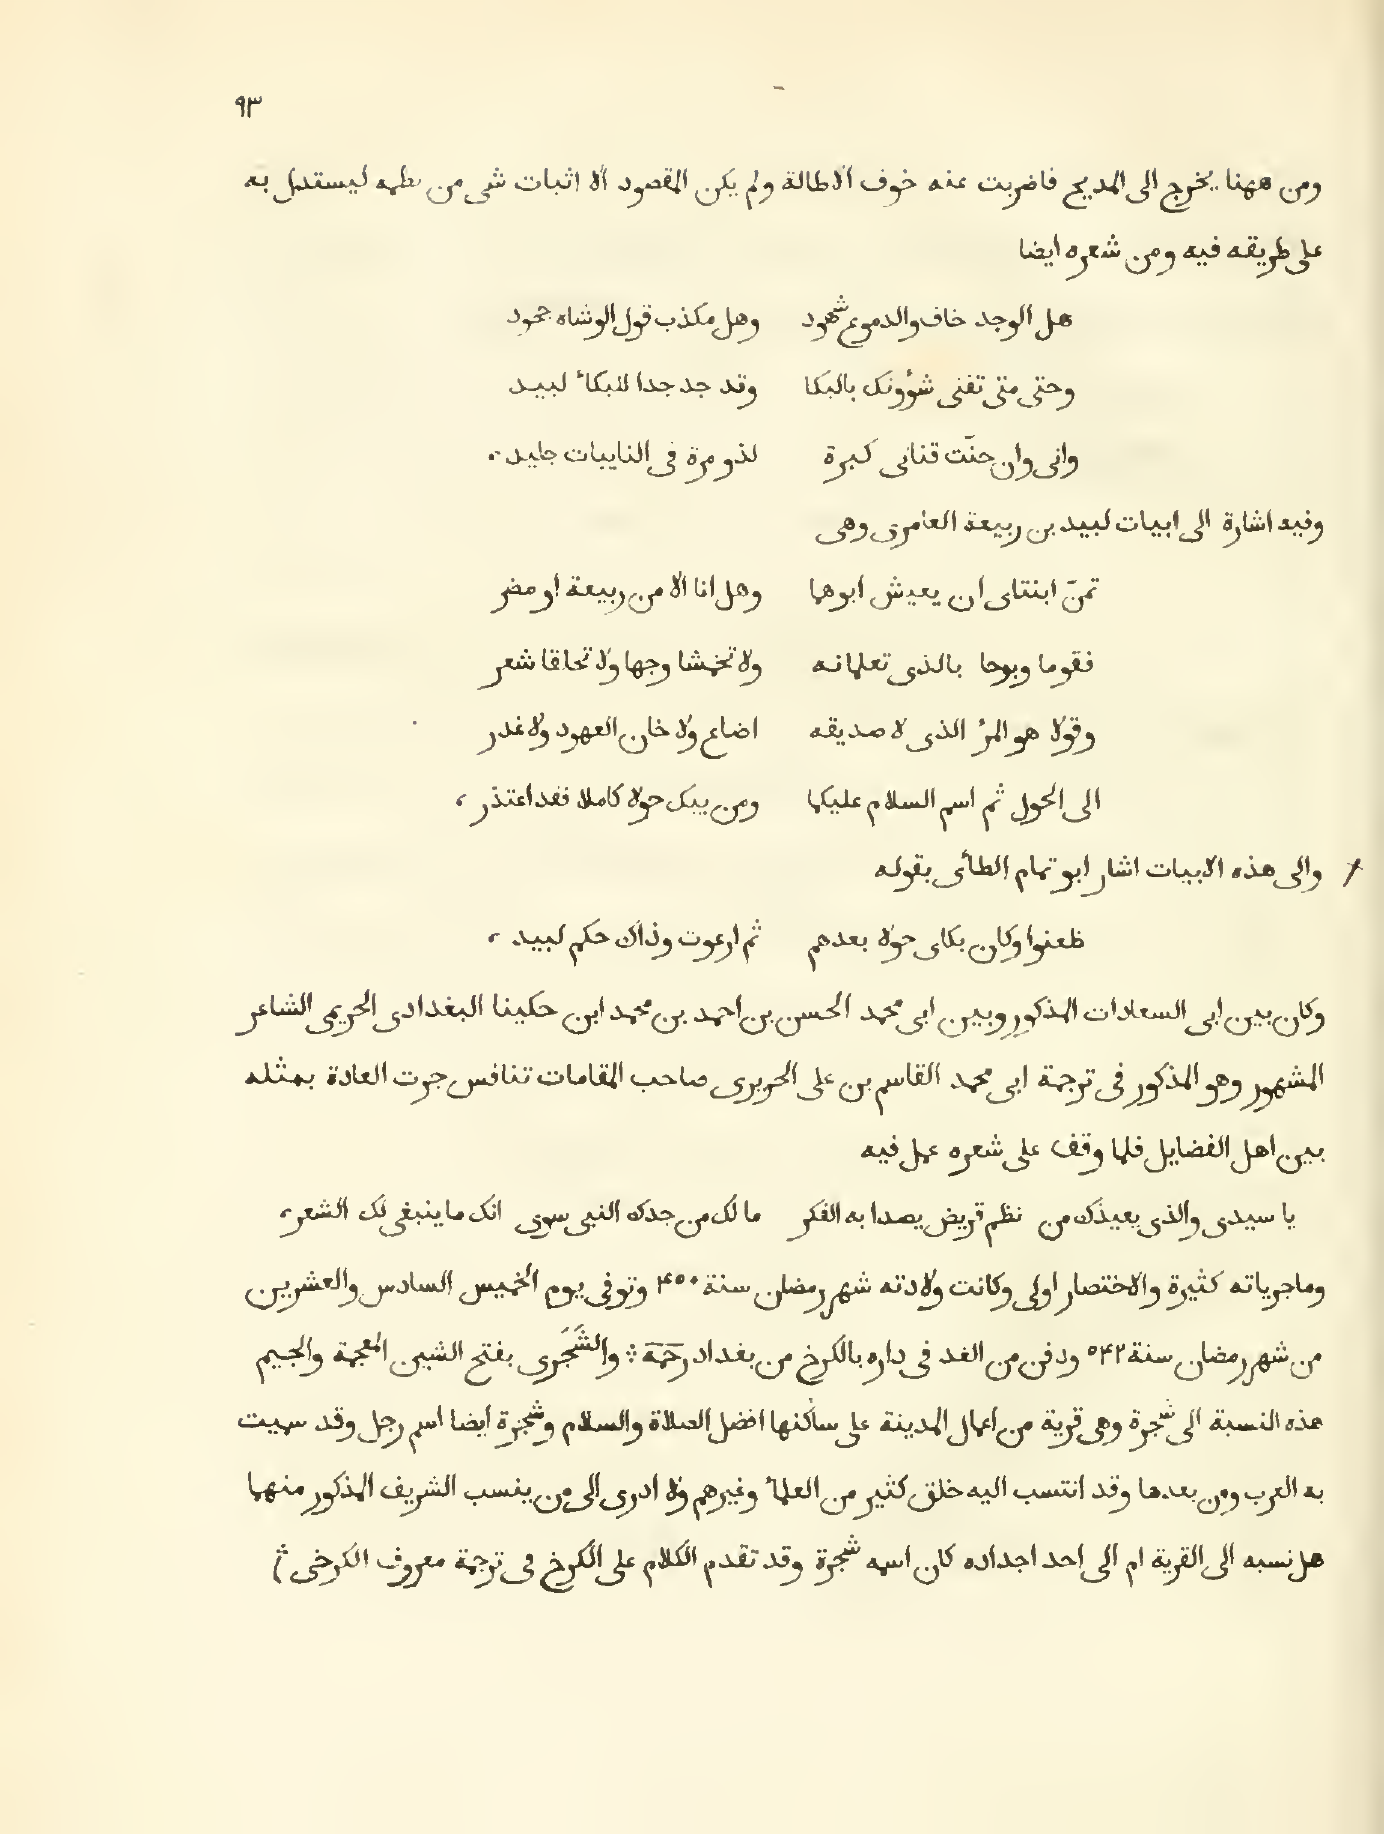 ٩٣
ومن ههنا يخرج الى المديح فاضربت عنه خوف الاطالة ولم يكن المقصود الا اثبات شى من نظمه ليستدل به
على طريقه فيه ومن شعره ايضا
هل الوجد خاف والدموع شهود وهل مكذب قول الوشاه جحود
وحتى متى تفنى شؤونك بالبكا وقد جد جدا للبكاء لبيد
وانى وان حنّت قناتى كبرة لذو مرة فى النايبات جليد
وفيه اشارة الى ابيات لبيد بن ربيعة العامرى وهى
تمنّ ابنتاى ان يعيش ابوهما وهل انا الا من ربيعة او مضر
فقوما وبوحا بالذى تعلمانه ولا تخمشا وجها ولا تحلقا شعر
وقولا هو المرء الذى لا صديقه اضاع ولا خان العهود ولا غدر
الى الحول ثم اسم السلام عليكما ومن يبك حولا كاملا فقد اعتذر
والى هذه الابيات اشار ابو تمام الطأى بقوله
ظعنوا وكان بكاى حولا بعدهم ثم ارعوت وذاك حكم لبيد
وكان بين ابى السعادات المذكور وبين ابى محمد الحسن بن احمد بن محمد ابن حكينا البغدادى الحريمى الشاعر
المشهور وهو المذكور فى ترجمة ابى محمد القاسم بن على الحريرى صاحب المقامات تنافس جرت العادة بمثله
بين اهل الفضايل فلما وقف على شعره عمل فيه
يا سيدى والذى يعيذك من نظم قريض يصدا به الفكر ما لك من جدك النبى سوى انك ما ينبغى لك الشعر
وماجرياته كثيرة والاختصار اولى وكانت ولادته شهر رمضان سنة ۴۵۰ وتوفى يوم الخميس السادس والعشرين
من شهر رمضان سنة ۵۴۲ ودفن من الغد فى داره بالكرخ من بغداد رحمة والشَّجَرى بفتح الشين المعجمة والجيم
هذه النسبة الى شجرة وهى قرية من اعمال المدينة على ساكنها افضل الصلاة والسلام وشجرة ايضا اسم رجل وقد سميت
به العرب ومن بعدها وقد انتسب اليه خلق كثير من العلماء وغيرهم ولا ادرى الى من ينسب الشريف المذكور منهما
هل نسبه الى القرية ام الى احد اجداده كان اسمه شجرة وقد تقدم الكلام على الكرخ فى ترجمة معروف الكرخى